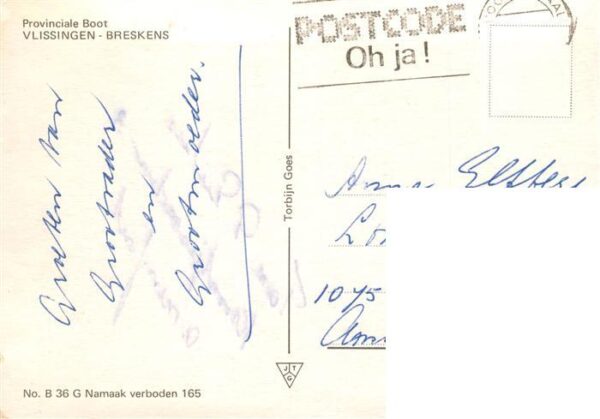 Provinciale Boot
VLISSINGEN - BRESKENS
POSTCODE
Oh ja!
Groeten van
Grootvader
en
Grootmoeder.
Torbijn Goes
Anna
1075
J T
G
No. B 36 G Namaak verboden 165